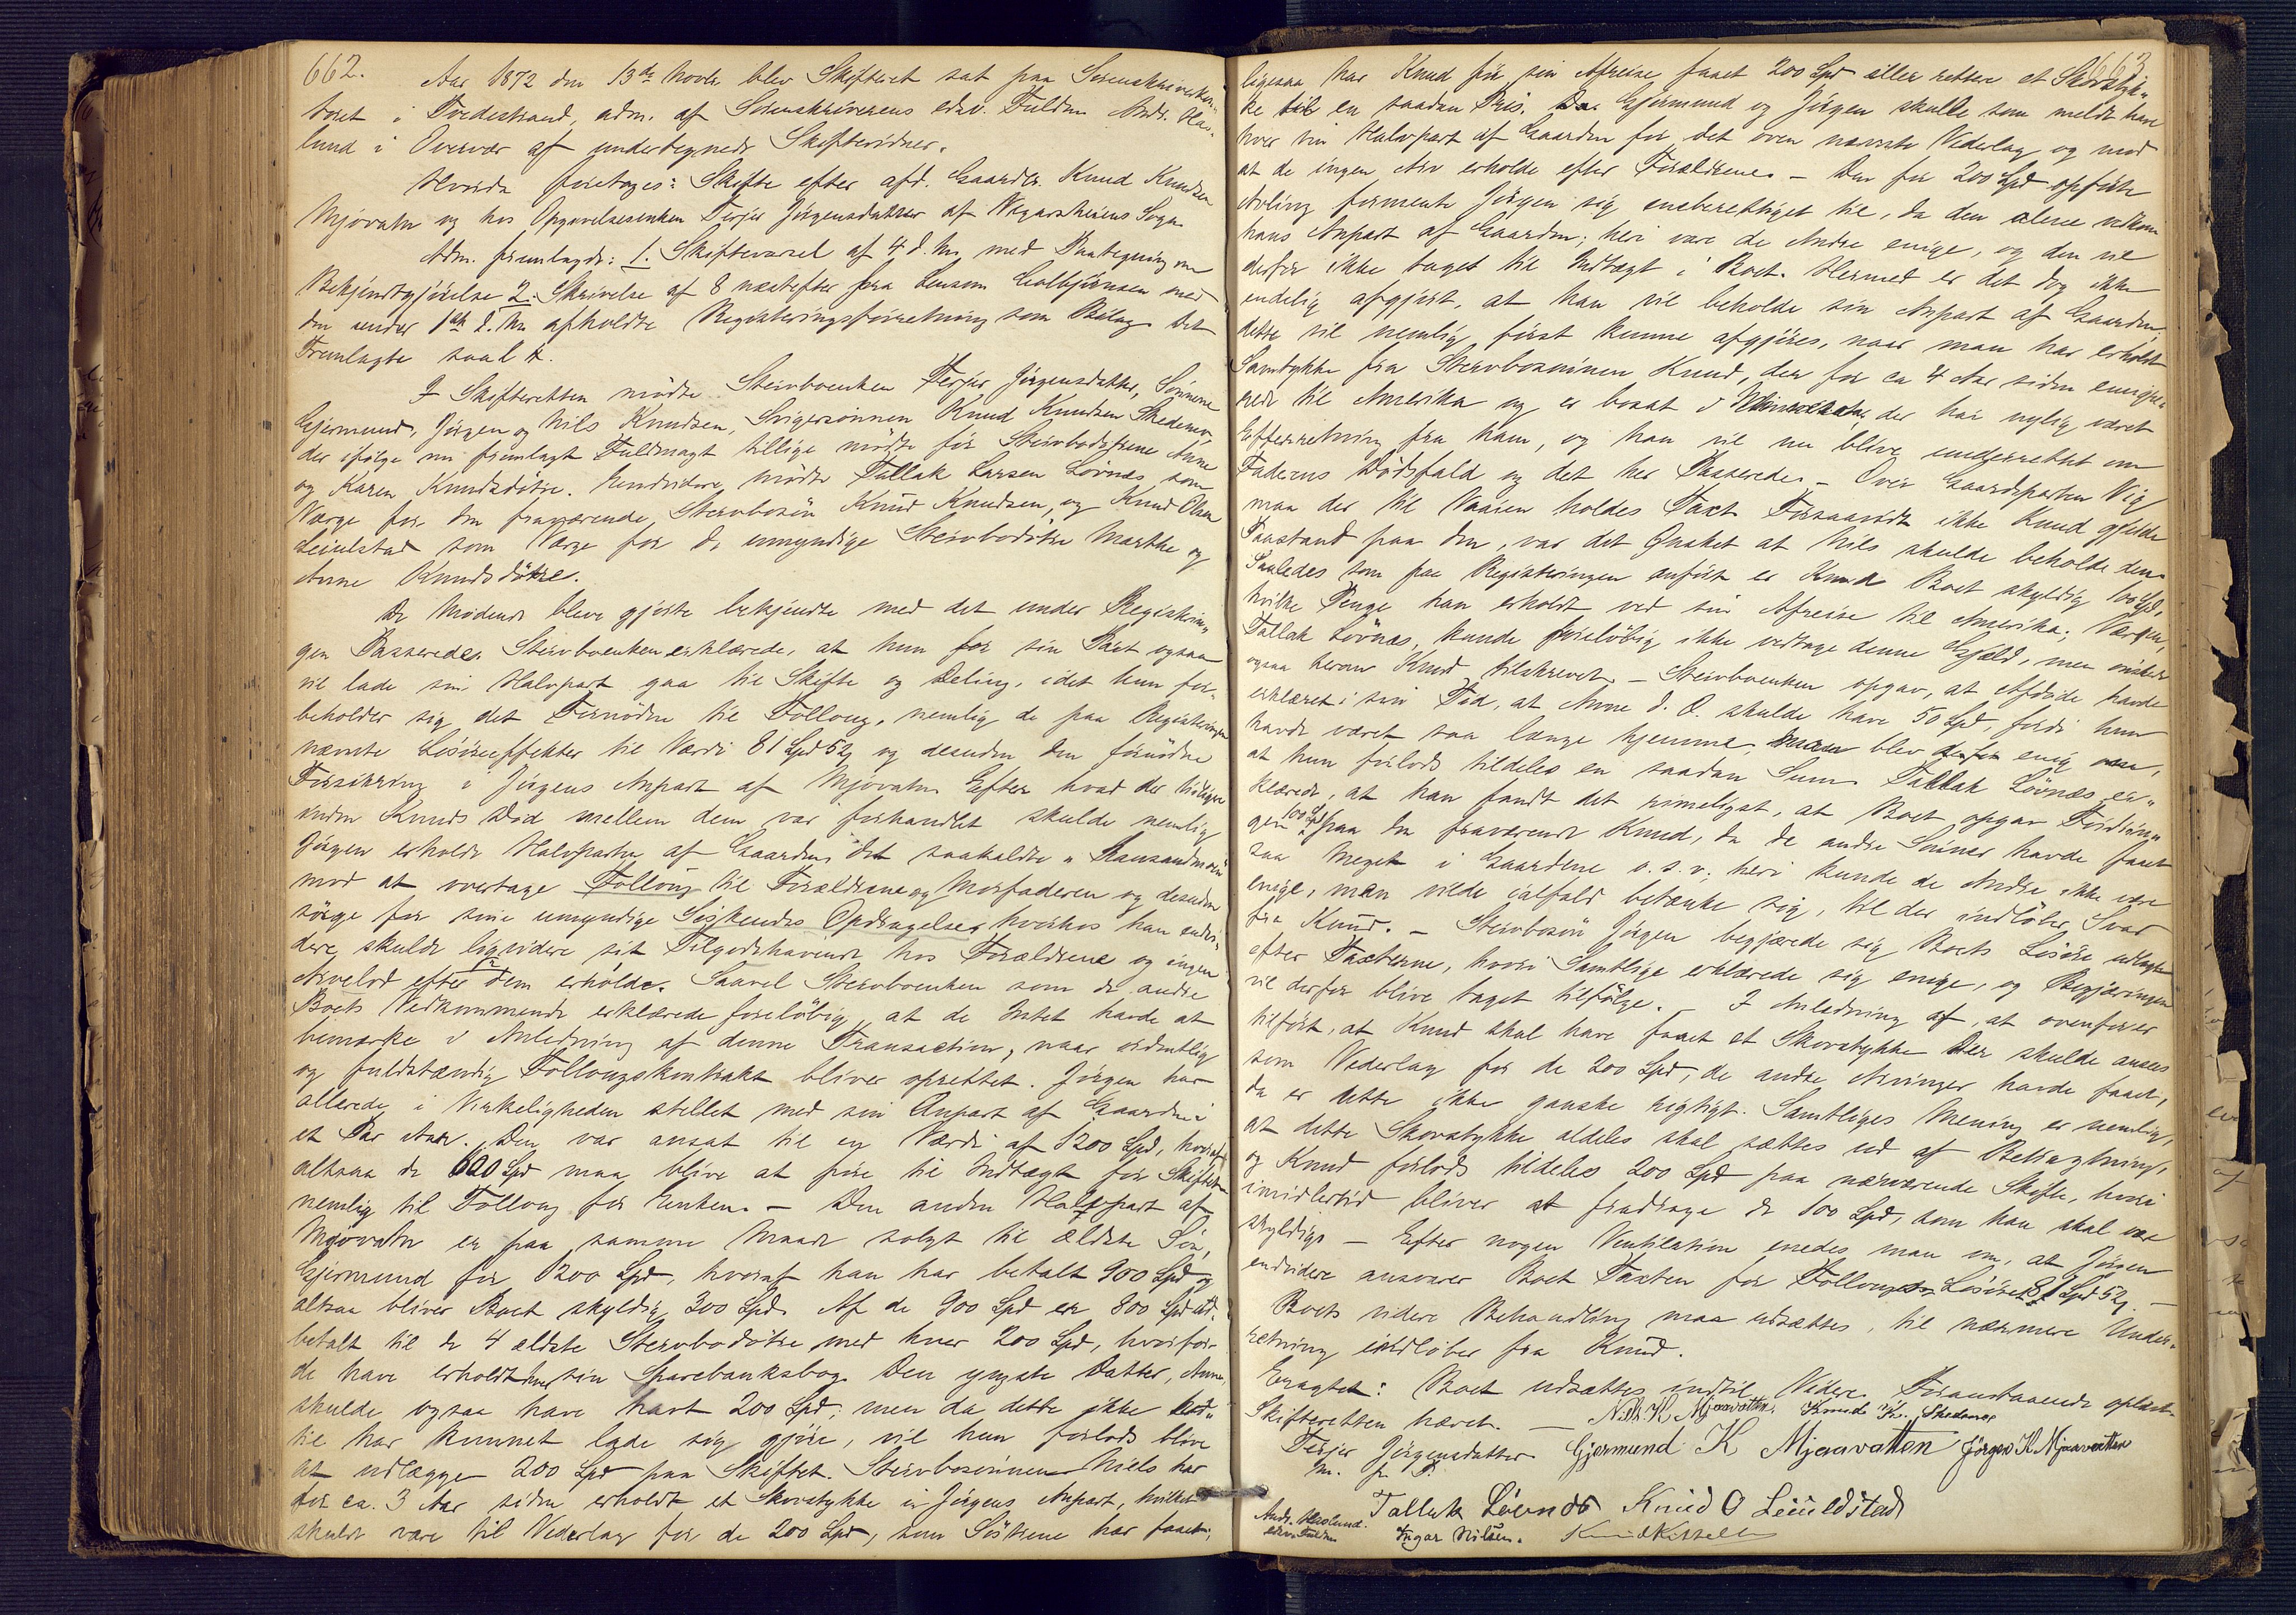 662.
Aar 1872 den 13de Novbr. blev Skifteret sat paa Sorenskriverkon-
toret i Tvedestrand, adm. af Sorenskriverens edsv. Fuldm. Andr. Has-
lund i Overvær af undertegnede Skiftevidner.
Hvorda foretoges: Skifte efter afd. Gaardbr. Knud Knudsen
Mjovatn og hos Opgivelsesenken Terjer Jörgensdatter af Vegarsheiens Sogn.
Adm. fremlagde: 1. Skiftevarsel af 4 d. M. med Paategning om
Bekjendtgjörelse 2. Skrivelse af 8 næstefter fra Lensm. Colbjörnsen med
den under 1ste d. M. afholdte Registreringsforretning som Bilag. Det
Fremlagte saal.
I Skifteretten mödte Stervboenken Terjer Jörgensdatter, Sönnerne
Gjermund, Jörgen og Nils Knudsen, Svigersönnen Knud Knudsen Skedsmo,
der ifölge nu fremlagt Fuldmagt tillige mödte for Stervbodöttrene Anne
og Karen Knudsdötre. Endvidere mödte Tallak Larsen Lövnæs som
Værge for den fraværende Stervbosön Knud Knudsen, og Knud Olsen
Leiulstad som Værge for de umyndige Stervbodötre Marthe og
Anne Knudsdötre.
De Mödende bleve gjorte bekjendte med det under Registrerin-
gen Passerede. Stervboenken erklærede, at hun for sin Part ogsaa
vil lade sin Halvpart gaa til Skifte og Deling, idet hun for-
beholder sig det Fornödne til Folloug, nemlig de paa Registreringen
nævnte Lösöreeffekter til Værdi 81 Spd 52 og desuden den fornödne
Forsikring i Jörgens Anpart af Mjovatn. Efter hvad der tidligere
inden Knuds Död mellem dem var forhandlet skulde nemlig
Jörgen erholde Halvparten af Gaarden, det saakaldte
mod at overtage Folloug til Forældrene og Morfaderen og desuden
sörge for sine umyndige Söskendes Opdragelse, hvorhos han endvi-
dere skulde liqvidere sit Tilgodehavende hos Forældrene og ingen
Arvelod efter dem erholde. Saavel Stervboenken som de andre
Boets Vedkommende erklærede foreløbig, at de Intet havde at
bemærke i Anledning af denne Transaction, naar ordentlig
og fuldstændig Follougskontrakt bliver oprettet. Jörgen har
allerede i Virkeligheden stellet med sin Anpart af Gaarden i
et Par Aar. Den var ansat til en Værdi af 1200 Spd, hvoraf
altsaa de 600 Spd maa blive at före til Indtægt for Skiftet
nemlig til Follog for Enken. – Den anden Halvpart af
Mjovatn er paa samme Maade solgt til ældste Sön,
Gjermund for 1200 Spd, hvoraf han har betalt 900 Spd og
altsaa bliver Boet skyldig 300 Spd. Af de 900 Spd er 800 Spd ud-
betalt til de 4 ældste Stervbodötre med hver 200 Spd, hvorfor
de have erholdt hver sin Sparebanksbog. Den yngste Datter, Anne,
skulde ogsaa have havt 200 Spd; men da dette ikke hid-
til har kunnet lade sig gjöre, vil hun forlods blive
at udlægge 200 Spd paa Skiftet. Stervbosönnen Niels har
for ca. 3 Aar siden erholdt et Skovstykke i Jörgens Anpart, hvilket
skulde være til Vederlag for de 200 Spd, som Söstrene har faaet;
663
ligesaa har Knud för sin Afreise faaet 200 Spd eller rettere et Skovstyk-
ke til en saadan Pris. Gjermund og Jörgen skulle som meldt have
hver sin Halvpart af Gaarden for det oven nævnte Vederlag og mod
at de ingen Arv erholde efter Forældrene. – Den for 200 Spd opförte
Avling formente Jörgen sig eneberettiget til, da den alene vedkom
hans Anpart af Gaarden; heri vare de Andre enige, og den vil
derfor ikke taget til Indtægt i Boet. Hermed er det dog ikke
endelig afgjort, at han vil beholde sin Anpart af Gaarden;
dette vil nemlig först kunne afgjöres, naar man har erholdt
Samtykke fra Stervbosönnen Knud, der for ca 4 Aar siden emigre-
rede til Amerika og er bosat i Minnesota; der har nylig været
Efterretning fra ham, og han vil nu blive underrettet om
Faderens Dödsfald og det her Passerede. – Over Gaardsparten Vig
maa der til Vaaren holdes Taxt. Forsaavidt ikke Knud gjorde
Paastand paa den, var det Önsket at Nils skulde beholde den.
Saaledes som paa Registreringen anfört er Knud Boet skyldig 100 Spd,
hvilke Penge han erholdt ved sin Afreise til Amerika. Værgen,
Tallak Lövnæs, kunde foreløbig ikke vedtage denne Gjæld, men
ogsaa herom Knud tilskrevet. – Stervboenken opgav, at Afdöde havde
erklæret i sin Tid, at Anne d. Æ. skulde have 50 Spd, fordi hun
havde været saa længe hjemme, blev enig om,
at hun forlods tildeles en saadan Sum. Tallak Lövnæs er-
klærede, at han fandt det rimeligst, at Boet opgav Fordrin-
gen 100 Spd paa den fraværende Knud, da de andre Sönner havde faaet
saa Meget i Gaardene o. s. v.; heri kunde de Andre ikke være
enige, man vilde ialfald betænke sig, til der indlöber Svar
fra Knud. – Stervbosön Jörgen begjærede sig Boets Lösöre udlagt
efter Taxterne, hvori Samtlige erklærede sig enige, og Begjæringen
vil derfor blive taget tilfölge. – I Anledning af, at ovenfor er
tilfört, at Knud skal have faaet et Skovstykke der skulde ansees
som Vederlag for de 200 Spd, de andre Arvinger havde faaet,
da er dette ikke ganske rigtigt. Samtliges Mening er nemlig,
at dette Skovstykke aldeles skal sættes ud af Betragtning,
og Knud forlods tildeles 200 Spd paa nærværende Skifte, hvori
imidlertid bliver at fradrage de 100 Spd, som han skal være
skyldig. – Efter nogen Ventilation enedes man om, at Jörgen
endvidere ansvarer Boet Taxten for Lösöret 81 Spd 52. –
Boets videre Behandling maa udsættes, til nærmere Under-
retning indlöber fra Knud.
Eragtet: Boet udsættes indtil Videre. Foranstaaende oplæst.
Skifteretten hævet. – N. K Mjaavatten. Knud Kn. Skedsmo
Terjer Jörgensdatter Gjermund K Mjaavatten Jörgen K. Mjaavatten
m. f. P.
Tallak Løvnæs Knud O Leiuldstad
Andr. Haslund.
edsv. Fuldm. Ingar Nilsen.